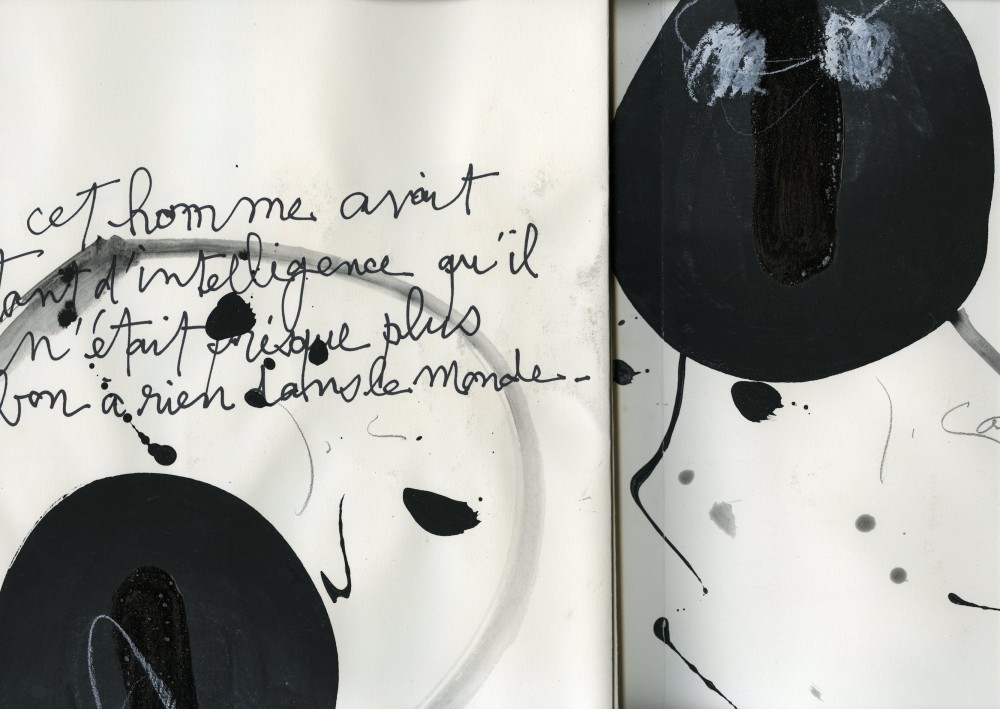 cet homme avait
tant d'intelligence qu'il
n'était presque plus
bon à rien dans le monde..